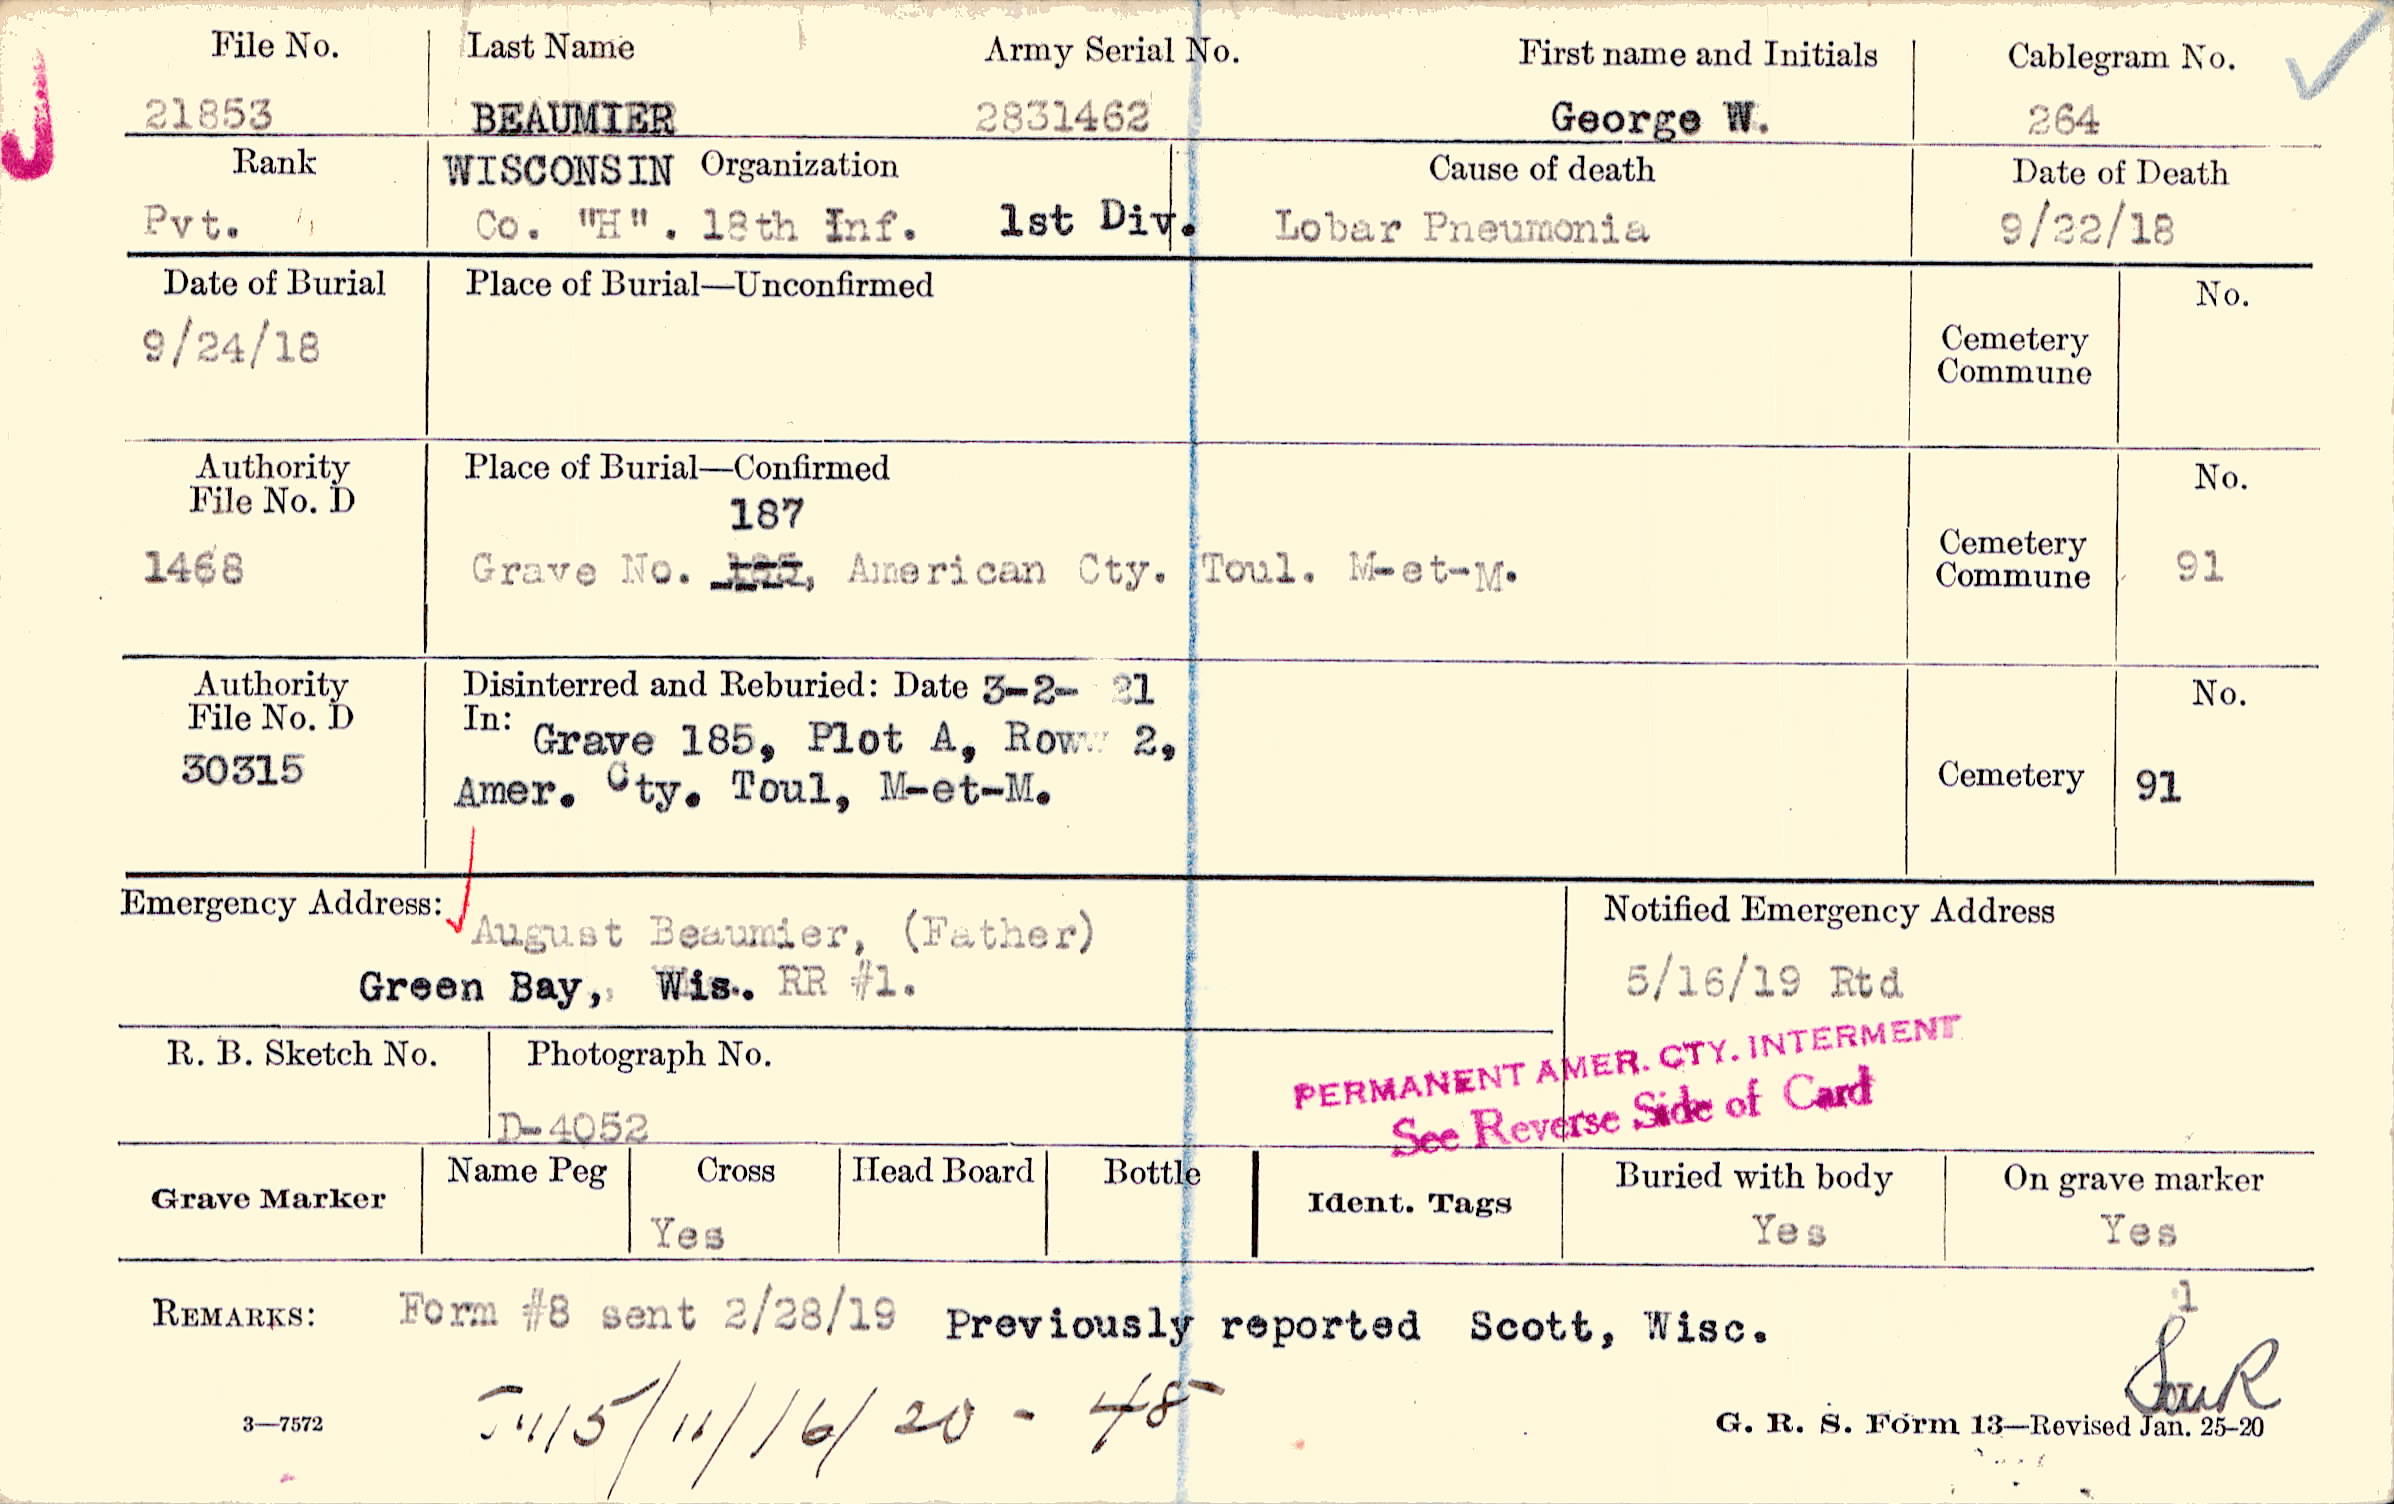 File No. Last Name Army Serial No. First name and Initials Cablegram No.
21853 BEAUMIER 2831462 George W. 264
Rank WISCONSIN Organization Cause of death Date of Death
Pvt. Co. "H". 18th Inf. 1st Div. Lobar Pneumonia 9/22/18
Date of Burial Place of Burial—Unconfirmed No.
9/24/18
Cemetery
Commune
Authority Place of Burial—Confirmed No.
File No. D
187
1468 Grave No. 185, American Cty. Toul. M-et-M. 91
Cemetery
Commune
Authority Disinterred and Reburied: Date 3-2- 21 No.
File No. D In: Grave 185, Plot A, Row 2,
30315 Amer. Cty. Toul, M-et-M. Cemetery 91
Emergency Address: Notified Emergency Address
August Beaumier, (Father)
Green Bay, Wis. RR #1. 5/16/19 Rtd
R. B. Sketch No. Photograph No.
PERMANENT AMER. CTY. INTERMENT
See Reverse Side of Card
D-4052
Grave Marker Name Peg Cross Head Board Bottle Ident. Tags Buried with body On grave marker
Yes Yes Yes
1
REMARKS: Form #8 sent 2/28/19 Previously reported Scott, Wisc.
/16/20 - 48
3—7572 G. R. S. Form 13—Revised Jan. 25-20